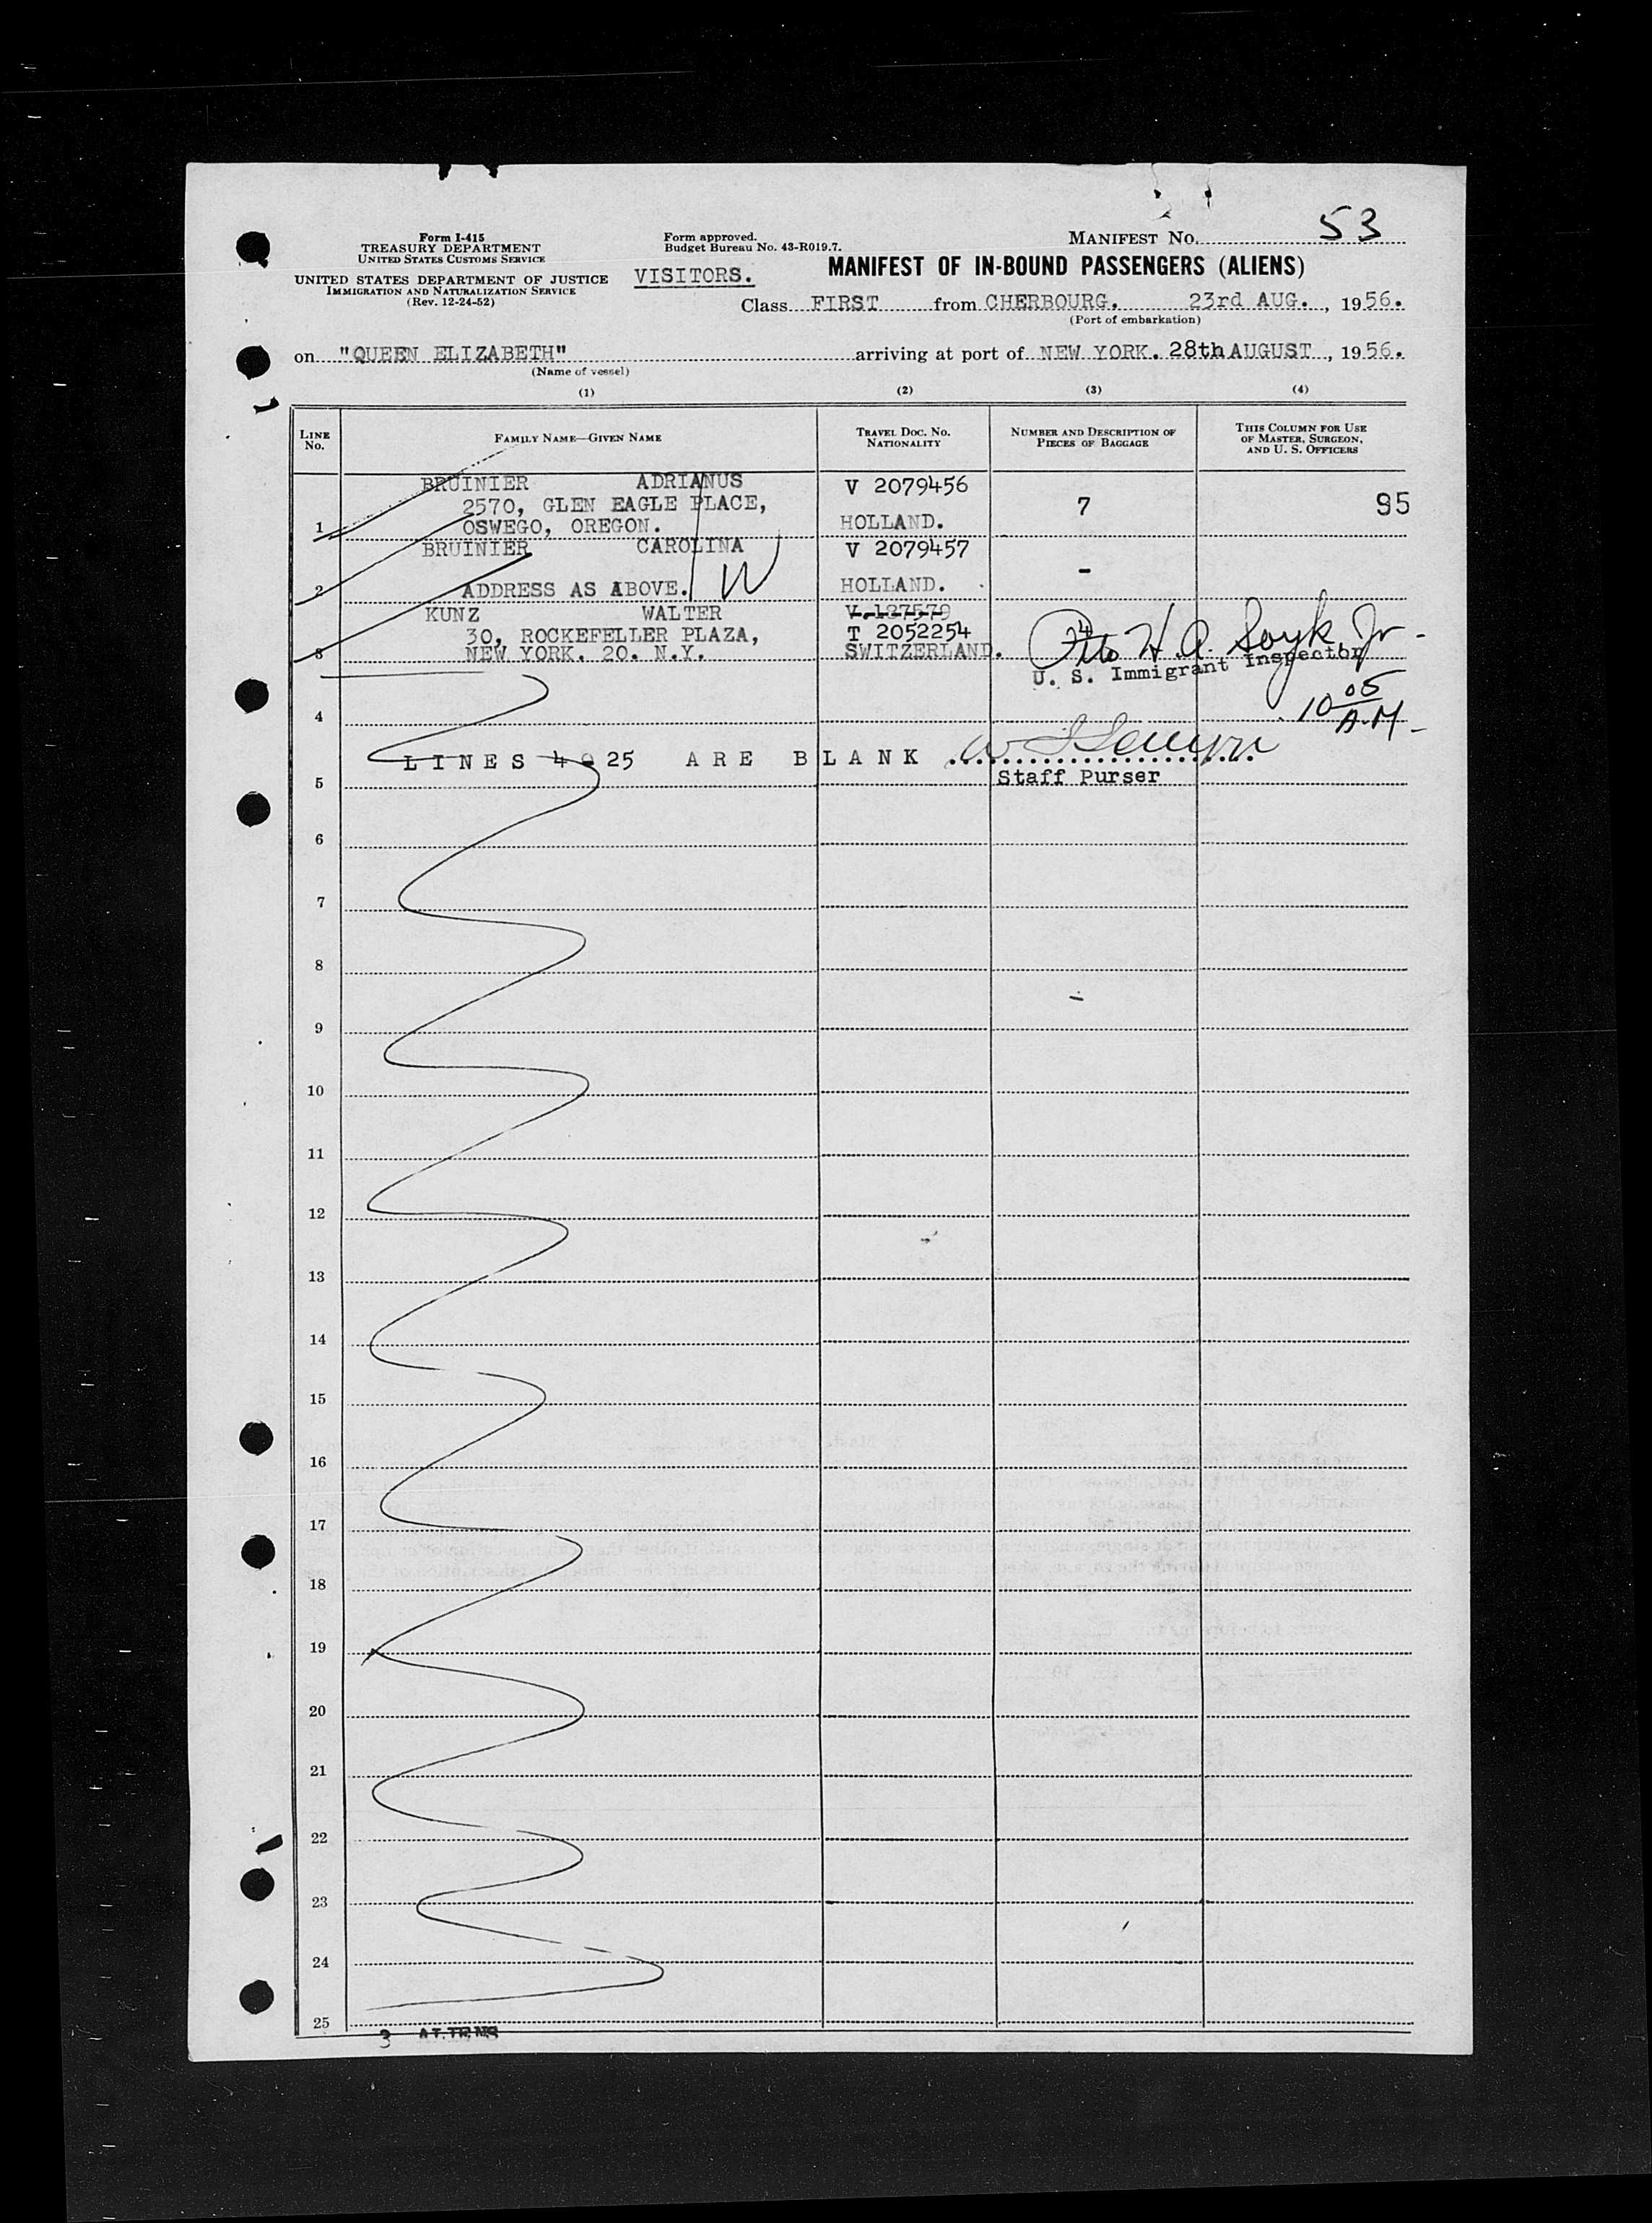 53
Form I-415
TREASURY DEPARTMENT
UNITED STATES CUSTOMS SERVICE
UNITED STATES DEPARTMENT OF JUSTICE
IMMIGRATION AND NATURALIZATION SERVICE
(Rev. 12-24-52)
Form approved.
Budget Bureau No. 43-R019.7.
MANIFEST NO.
VISITORS.
MANIFEST OF IN-BOUND PASSENGERS (ALIENS)
Class FIRST from CHERBOURG. 23rd AUG., 1956.
(Port of embarkation)
on "QUEEN ELIZABETH" arriving at port of NEW YORK. 28th AUGUST, 1956.
(Name of vessel)
(1) (2) (3) (4)
LINE No.
FAMILY NAME—GIVEN NAME
TRAVEL DOC. NO. NATIONALITY
NUMBER AND DESCRIPTION OF PIECES OF BAGGAGE
THIS COLUMN FOR USE OF MASTER, SURGEON, AND U. S. OFFICERS
BRUINIER ADRIANUS V 2079456
2570, GLEN EAGLE PLACE, 7 95
1 OSWEGO, OREGON. HOLLAND.
BRUINIER CAROLINA V 2079457
-
2 ADDRESS AS ABOVE. HOLLAND.
W
KUNZ WALTER V.187579
30, ROCKEFELLER PLAZA, T 2052254 4
3 NEW YORK. 20. N.Y. SWITZERLAND.
Otto H. A. Soyk, Jr.
U. S. Immigrant Inspector
10 05 A.M.
4
LINES 4-25 ARE BLANK
Staff Purser
5
6
7
8
9
10
11
12
13
14
15
16
17
18
19
20
21
22
23
24
25
3